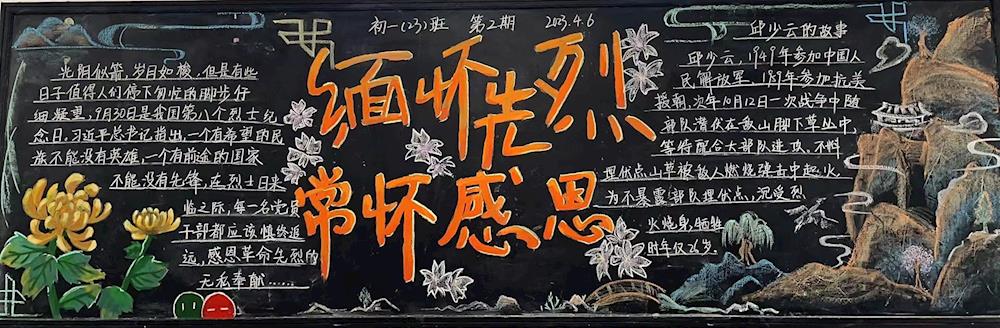 初一(23)班 第2期 2023.4.6
缅怀先烈
常怀感恩
光阴似箭，岁月如梭，但是有些
日子值得人们停下匆忙的脚步仔
细凝望，9月30日是我国第八个烈士纪
念日，习近平总书记指出，一个有希望的民
族不能没有英雄，一个有前途的国家
不能没有先锋，在烈士日来
临之际，每一名党员
干部都应该慎终追
远，感恩革命先烈的
无私奉献......
邱少云的故事
邱少云，1949年参加中国人
民解放军，1951年参加抗美
援朝，次年10月12日一次战争中随
部队潜伏在敌山脚下草丛中，
等待配合大部队进攻，不料
埋伏点山草被敌人燃烧弹击中起火，
为不暴露部队埋伏点，沉受烈
火烧身，牺牲
时年仅26岁